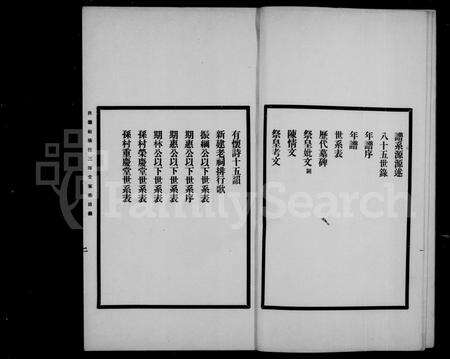 譜系源源述
八十五世錄
年譜序
年譜
世系表
歷代墓碑
祭皇妣文
陳情文
祭皇考文
有懷詩十五韻
新建老祠排行歌
振綱公以下世系表
期惠公以下世系序
期惠公以下世系表
期林公以下世系表
孫村榮慶堂世系表
孫村重慶堂世系表
二
FamilySearch